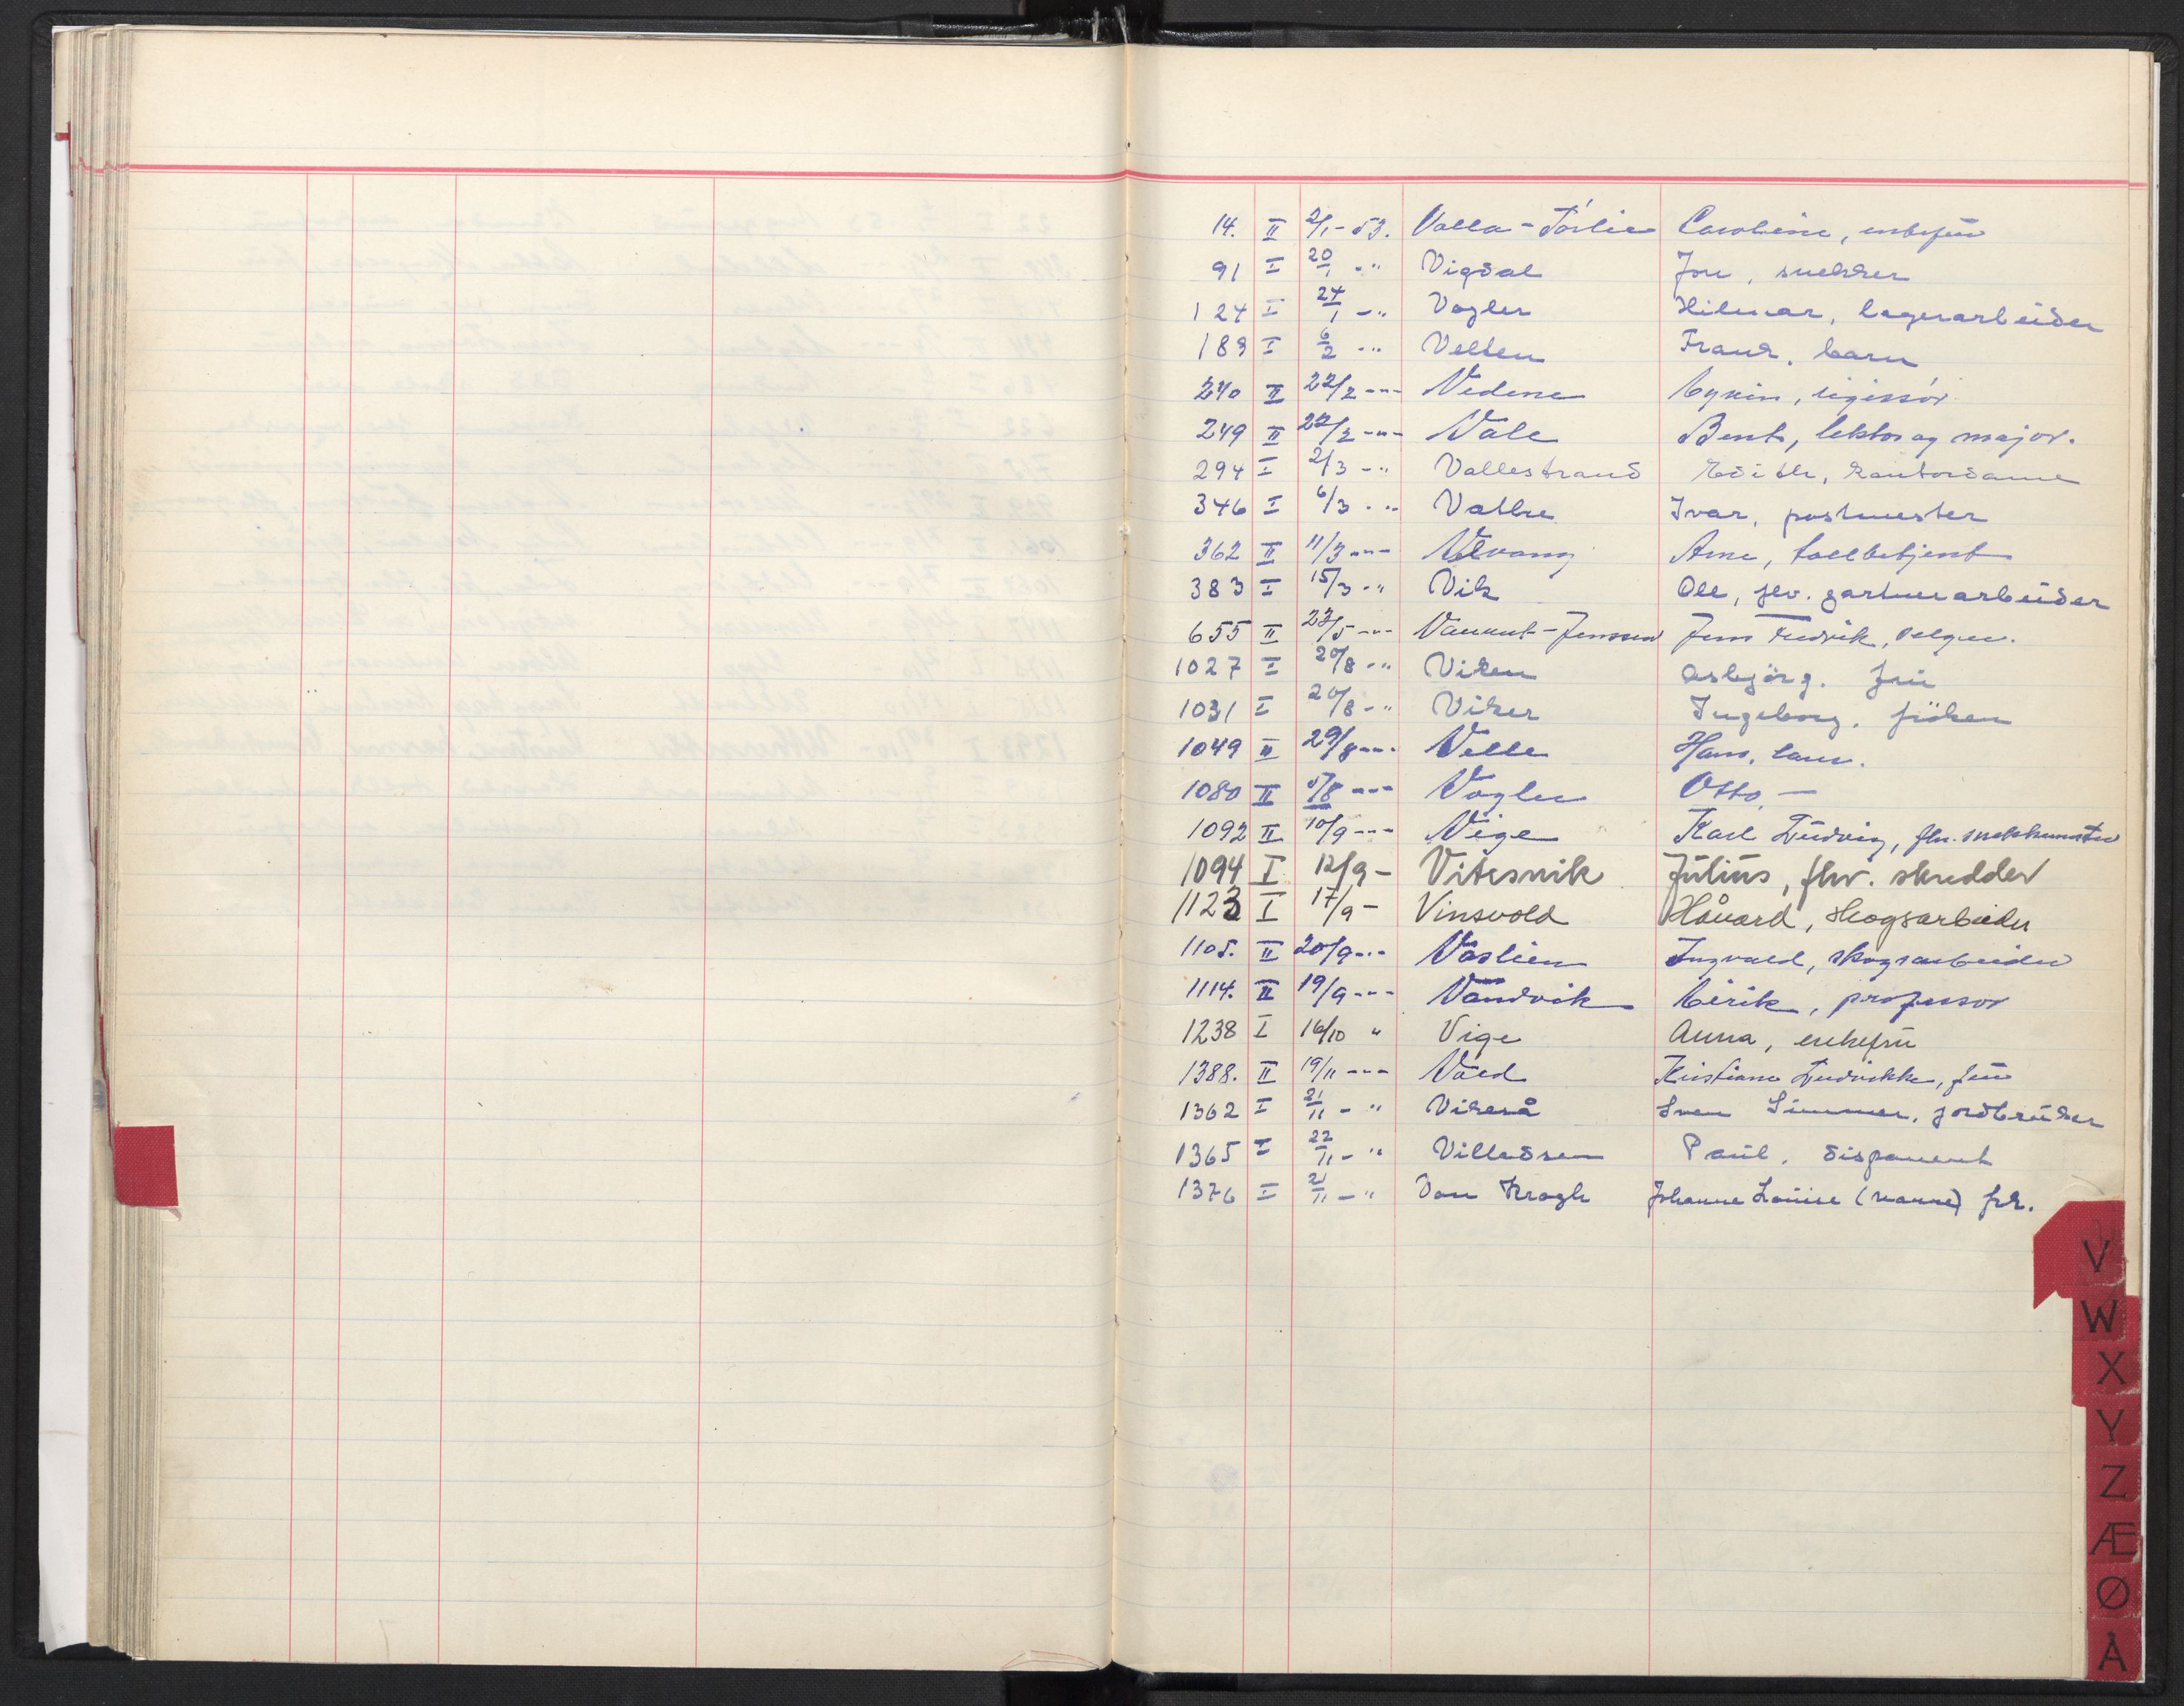 14. II 2/1-53. Valla-Tórlie Caroline, enkefrü
91 I 20/1 -" Vigdal Jon, snekker
124 I 24/1 -" Vogler Hilmar, lagerarbeider
189 I 6/2 -" Velten Frank, barn
240 II 22/2 -"- Vedene regissör
249 II 22/2 -"- Vale Bent, lektor og major.
294 I 2/3 -" Vallestrand Edith, kontordame
346 I 6/3 -" Vatne Ivar, postmester
362 II 11/3 -"- Arne, tollbetjent
383 I 15/3 -" Vik Ole, fhv. gartnerarbeider
655 II 23/5 -"- -Jenssen Jens Fredrik,
1027 I 20/8 -" Viken Asbjörg. frü
1031 I 20/8 -" Viker Ingeborg, fröken
1049 II 29/8 -"- Velle Hans, barn.
1080 II 5/8 -"- Vogler Otto, —
1092 II 10/9 -"- Vige Karl Lüdvig, fhv. snekkermester
1094 I 12/9 - Vitesnik Jülius, fhv. skredder
1123 I 17/9 - Vinsvold Håvard, skogsarbeider
1105. II 20/9 -"- Våslien Ingvald, skogsarbeider
1114. II 19/9 -"- Vandvik Eirik, professor
1238 I 16/10 " Vige Anna, enkefrü
1388. II 19/11 -"- Vold Kristiane Lüdvikke, frü
1362 I 21/11 -" Vikeså Sven Simmer, jordbrüker
1365 I 22/11 -" Villadsen Paül, disponent
1376 I 21/11 -" Von Krogh Johanne Loüise (Nanna) frk.
V
W
X
Y
Z
Æ
Ø
Å